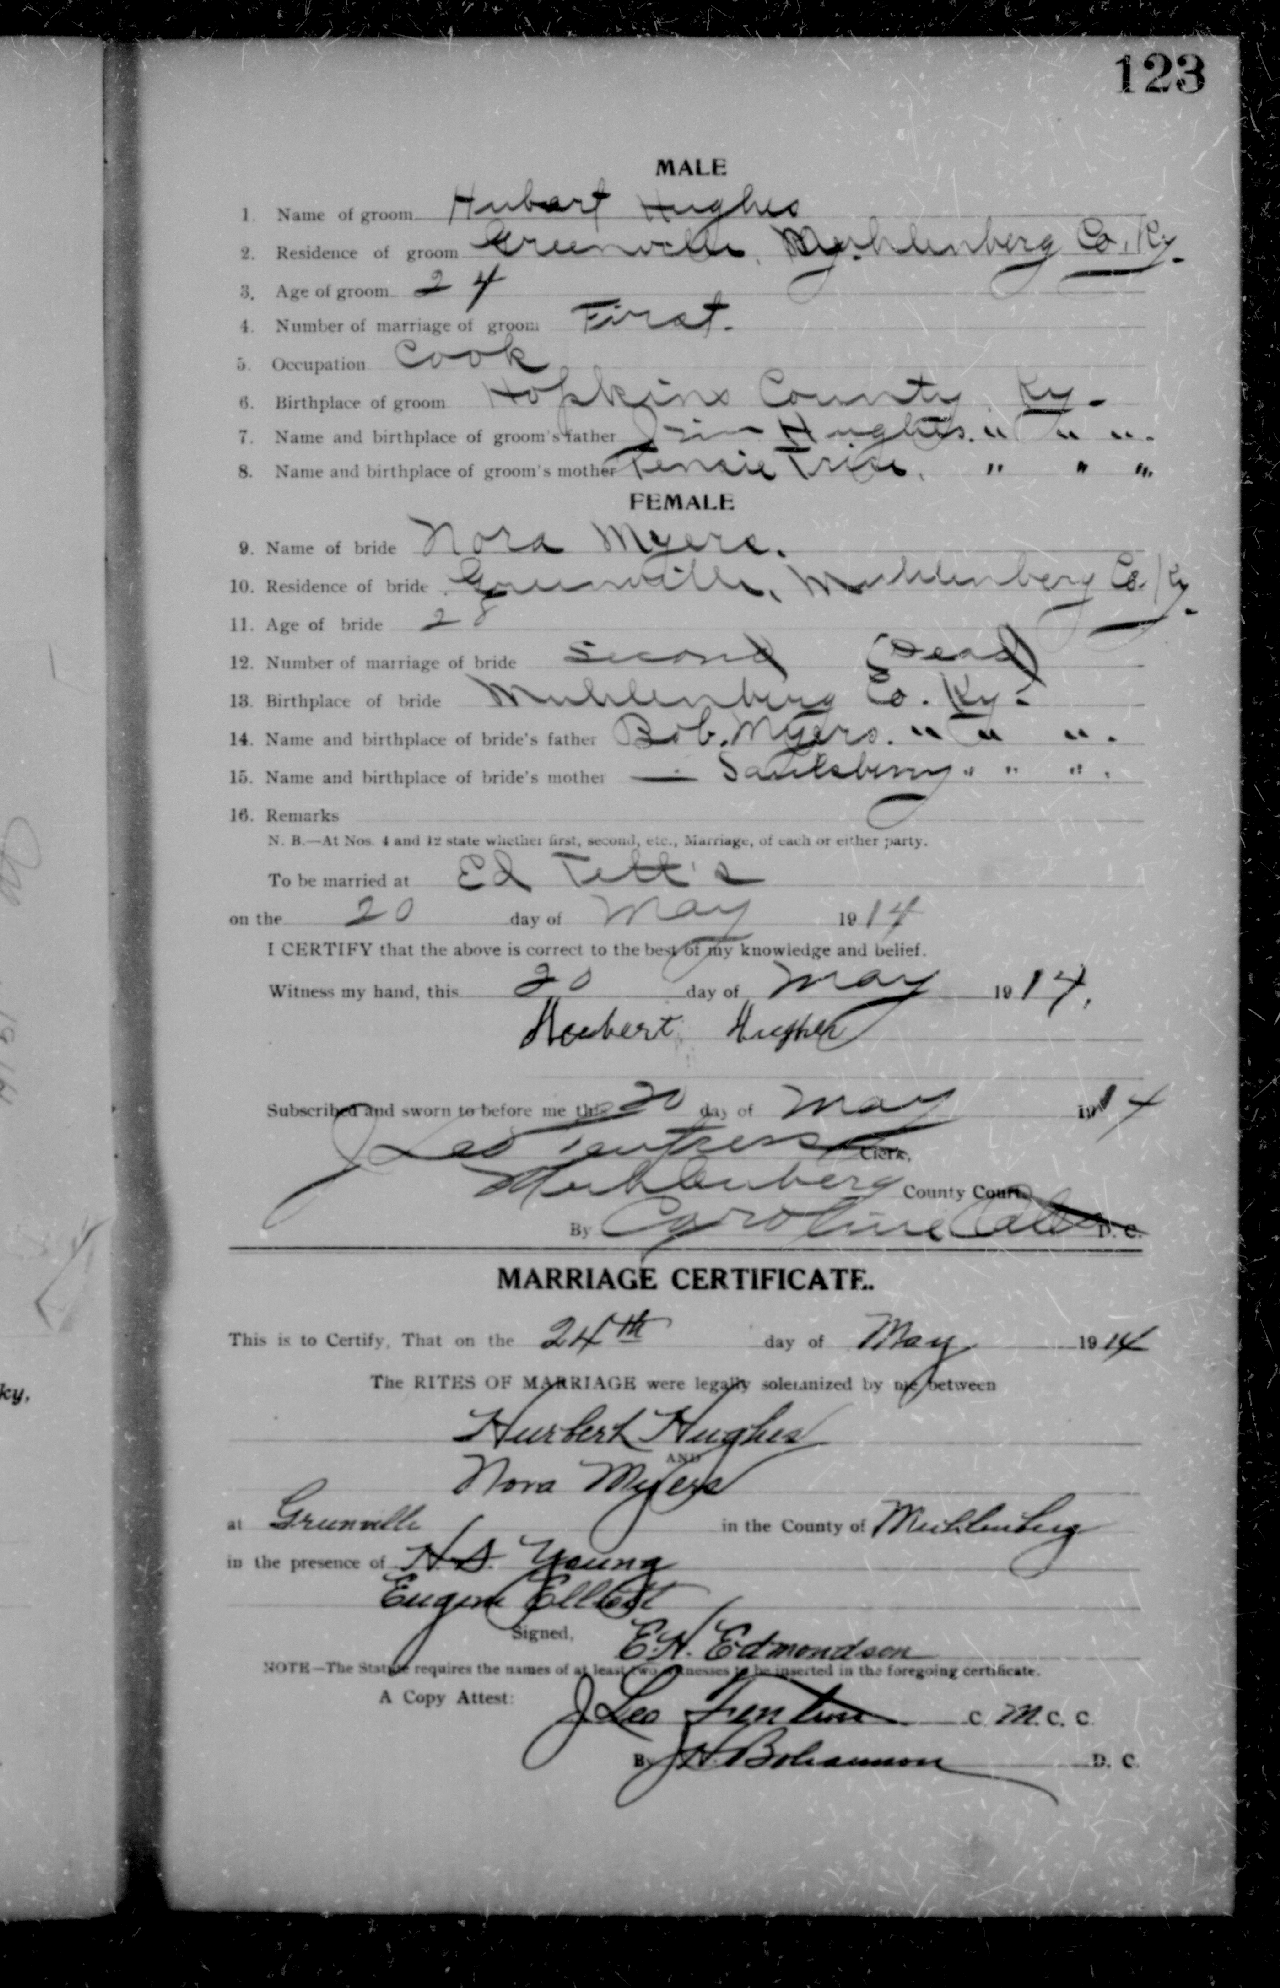 123
MALE
1. Name of groom Hubert Hughes
2. Residence of groom Greenville, Muhlenberg Co. Ky.
3. Age of groom 24
4. Number of marriage of groom First.
5. Occupation Cook
6. Birthplace of groom Hopkins County, Ky.
7. Name and birthplace of groom's father Jim Hughes. " " ".
8. Name and birthplace of groom's mother Tensie Trice, " " "
FEMALE
9. Name of bride Nora Myers.
10. Residence of bride Greenville, Muhlenberg Co. Ky.
11. Age of bride 28
12. Number of marriage of bride Second (Dead)
13. Birthplace of bride Muhlenberg Co. Ky.
14. Name and birthplace of bride's father Bob. Myers. " " ".
15. Name and birthplace of bride's mother — Saulsberry " " ".
16. Remarks
N. B.—At Nos. 4 and 12 state whether first, second, etc., Marriage, of each or either party.
To be married at Ed
on the 20 day of May 1914
I CERTIFY that the above is correct to the best of my knowledge and belief.
Witness my hand, this 20 day of May 1914.
Hubert Hughes
Subscribed and sworn to before me this 20 day of May 1914
J Leo Clerk,
Muhlenberg County Court
By Caroline D. C.
MARRIAGE CERTIFICATE.
This is to Certify, That on the 24th day of May 1914
The RITES OF MARRIAGE were legally solemnized by me between
Hurbert Hughes
AND
Nora Myers
at Greenville in the County of Muhlenberg
in the presence of H.S. Young
Eugene Elliott
Signed, E.H. Edmondson
NOTE—The Statute requires the names of at least two witnesses to be inserted in the foregoing certificate.
A Copy Attest: J Leo C. M. C. C.
By J H Bohannon D. C.
ky,